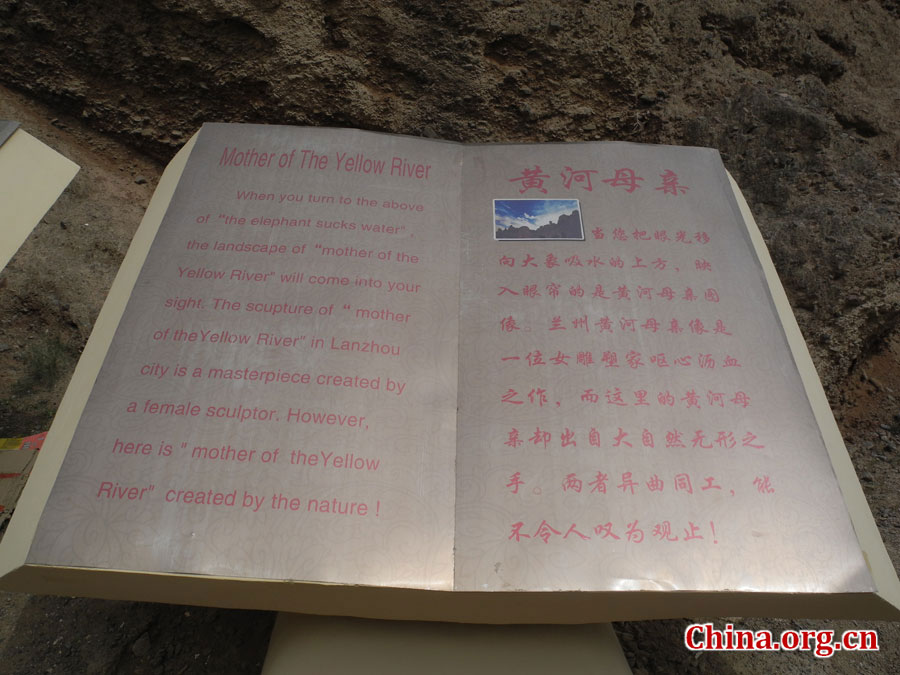 Mother of The Yellow River
When you turn to the above
of "the elephant sucks water" ,
the landscape of "mother of the
Yellow River" will come into your
sight. The scupture of " mother
of theYellow River" in Lanzhou
city is a masterpiece created by
a female sculptor. However,
here is " mother of theYellow
River" created by the nature !
黄河母亲
当您把眼光移
向大象吸水的上方，映
入眼帘的是黄河母亲图
像。兰州黄河母亲像是
一位女雕塑家呕心沥血
之作，而这里的黄河母
亲却出自大自然无形之
手。两者异曲同工，能
不令人叹为观止！
China.org.cn